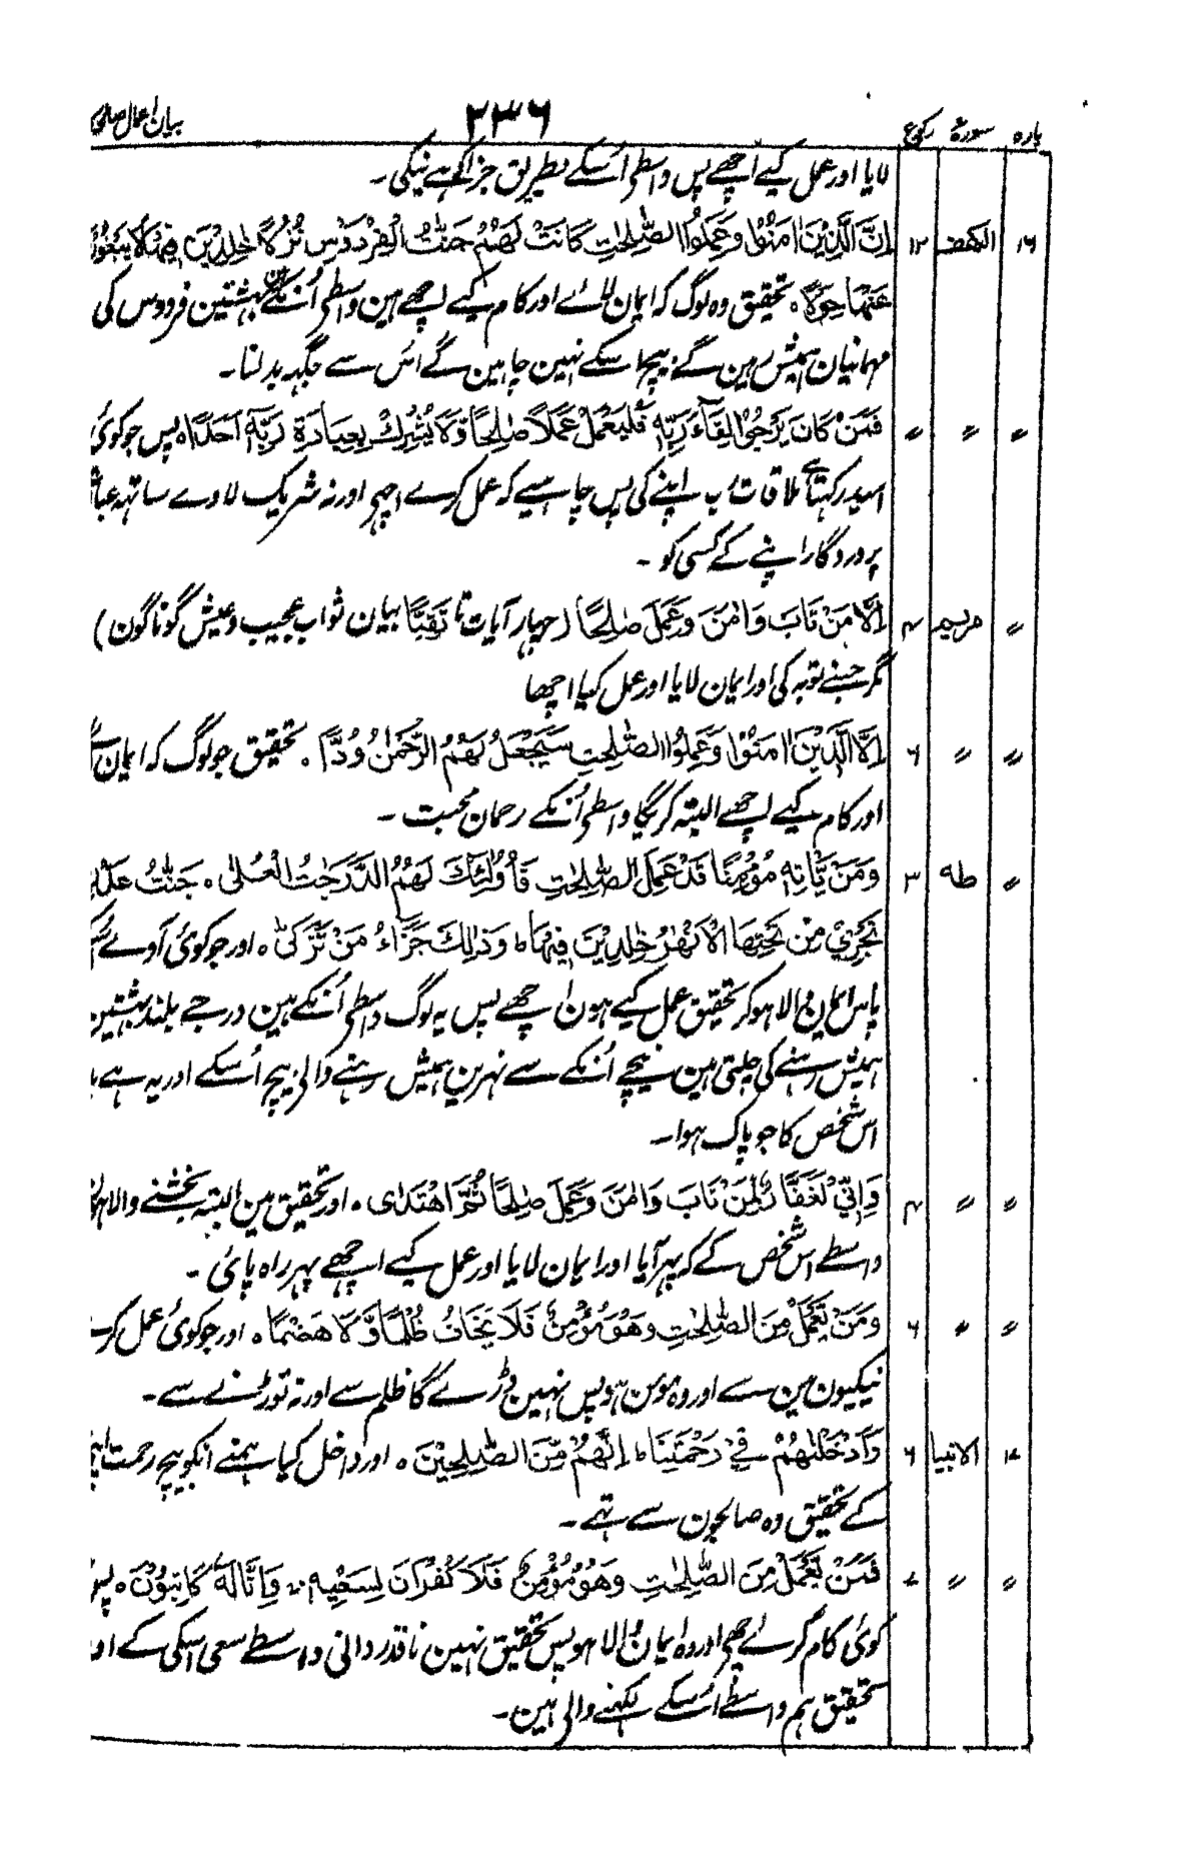 پارہ سورۃ رکوع ۲۳۶ بیان اعمال صالحہ
لایا اور عمل کیے اچھے پس واسطے اُسکے بطریق جزا کے ہے نیکی۔
۱۶ الکہف ۱۲ اِنَّ الَّذِیْنَ اٰمَنُوْا وَعَمِلُوا الصّٰلِحٰتِ کَانَتْ لَهُمْ جَنّٰتُ الْفِرْدَوْسِ نُزُلًا خٰلِدِیْنَ فِیْهَا لَا یَبْغُوْنَ
عَنْهَا حِوَلًا ہ تحقیق وہ لوگ کہ ایمان لائے اور کام کیے اچھے ہین واسطے اُنکے بہشتین فردوس کی
مہمانیان ہمیش رہین گے بیچ اسکے نہین چاہین گے اس سے جگہہ بدلنا۔
〃 〃 〃 فَمَنْ کَانَ یَرْجُوْا لِقَآءَ رَبِّهٖ فَلْیَعْمَلْ عَمَلًا صَالِحًا وَّلَا یُشْرِكْ بِعِبَادَةِ رَبِّهٖٓ اَحَدًا ہ پس جو کوئی
امید رکہتا ہے ملاقات رب اپنے کی پس چاہیے کہ عمل کرے اچہے اور نہ شریک لاوے ساتہہ
پروردگار اپنے کے کسی کو۔
〃 مریم ۴ اِلَّا مَنْ تَابَ وَاٰمَنَ وَعَمِلَ صٰلِحًا (چہار آیات تا تَقِیًّا بیان ثواب عجیب وعیش گوناگون)
مگر جسنے توبہ کی اور ایمان لایا اور عمل کیا اچھا
〃 〃 ۶ اِنَّ الَّذِیْنَ اٰمَنُوْا وَعَمِلُوا الصّٰلِحٰتِ سَیَجْعَلُ لَهُمُ الرَّحْمٰنُ وُدًّا ۔ تحقیق جو لوگ کہ ایمان
اور کام کیے اچھے البتہ کریگا واسطے اُنکے رحمان محبت۔
〃 طه ۳ وَمَنْ یَّاْتِهٖ مُؤْمِنًا قَدْ عَمِلَ الصّٰلِحٰتِ فَاُولٰٓئِكَ لَهُمُ الدَّرَجٰتُ الْعُلٰی ہ جَنّٰتُ عَدْنٍ
تَجْرِیْ مِنْ تَحْتِهَا الْاَنْهٰرُ خٰلِدِیْنَ فِیْهَا ط وَذٰلِكَ جَزَآءُ مَنْ تَزَکّٰی ہ اور جو کوئی آوے
پاس ایمان والا ہو کر تحقیق عمل کیے ہون اچھے پس یہ لوگ واسطے اُنکے ہین درجے بلند بہشتین
ہمیش رہنے کی چلتی ہین نیچے اُنکے سے نہرین ہمیش رہنے والے بیچ اُسکے اور یہ ہے
اس شخص کا جو پاک ہوا۔
〃 〃 ۴ وَاِنِّیْ لَغَفَّارٌ لِّمَنْ تَابَ وَاٰمَنَ وَعَمِلَ صٰلِحًا ثُمَّ اهْتَدٰی ہ اور تحقیق مین البتہ بخشنے والا
واسطے اس شخص کے کہ پہر آیا اور ایمان لایا اور عمل کیے اچھے پہر راہ پائی۔
〃 〃 ۶ وَمَنْ یَّعْمَلْ مِنَ الصّٰلِحٰتِ وَهُوَ مُؤْمِنٌ فَلَا یَخَافُ ظُلْمًا وَّلَا هَضْمًا ہ اور جو کوئی عمل کرے
نیکیون مین سے اور وہ مومن ہو پس نہین ڈرے گا ظلم سے اور نہ توڑنے سے۔
۱۷ الانبیا ۶ وَاَدْخَلْنٰهُمْ فِیْ رَحْمَتِنَا ط اِنَّهُمْ مِّنَ الصّٰلِحِیْنَ ہ اور داخل کیا ہمنے انکو بیچ رحمت اپنی
کے تحقیق وہ صالحون سے تہے۔
〃 〃 ۷ فَمَنْ یَّعْمَلْ مِنَ الصّٰلِحٰتِ وَهُوَ مُؤْمِنٌ فَلَا کُفْرَانَ لِسَعْیِهٖ ۚ وَاِنَّا لَهٗ کَاتِبُوْنَ ہ پس
کوئی کام کرے اچھے اور وہ ایمان والا ہو پس تحقیق نہین ناقدردانی واسطے سعی اسکی کے اور
تحقیق ہم واسطے اُسکے لکہنے والے ہین۔